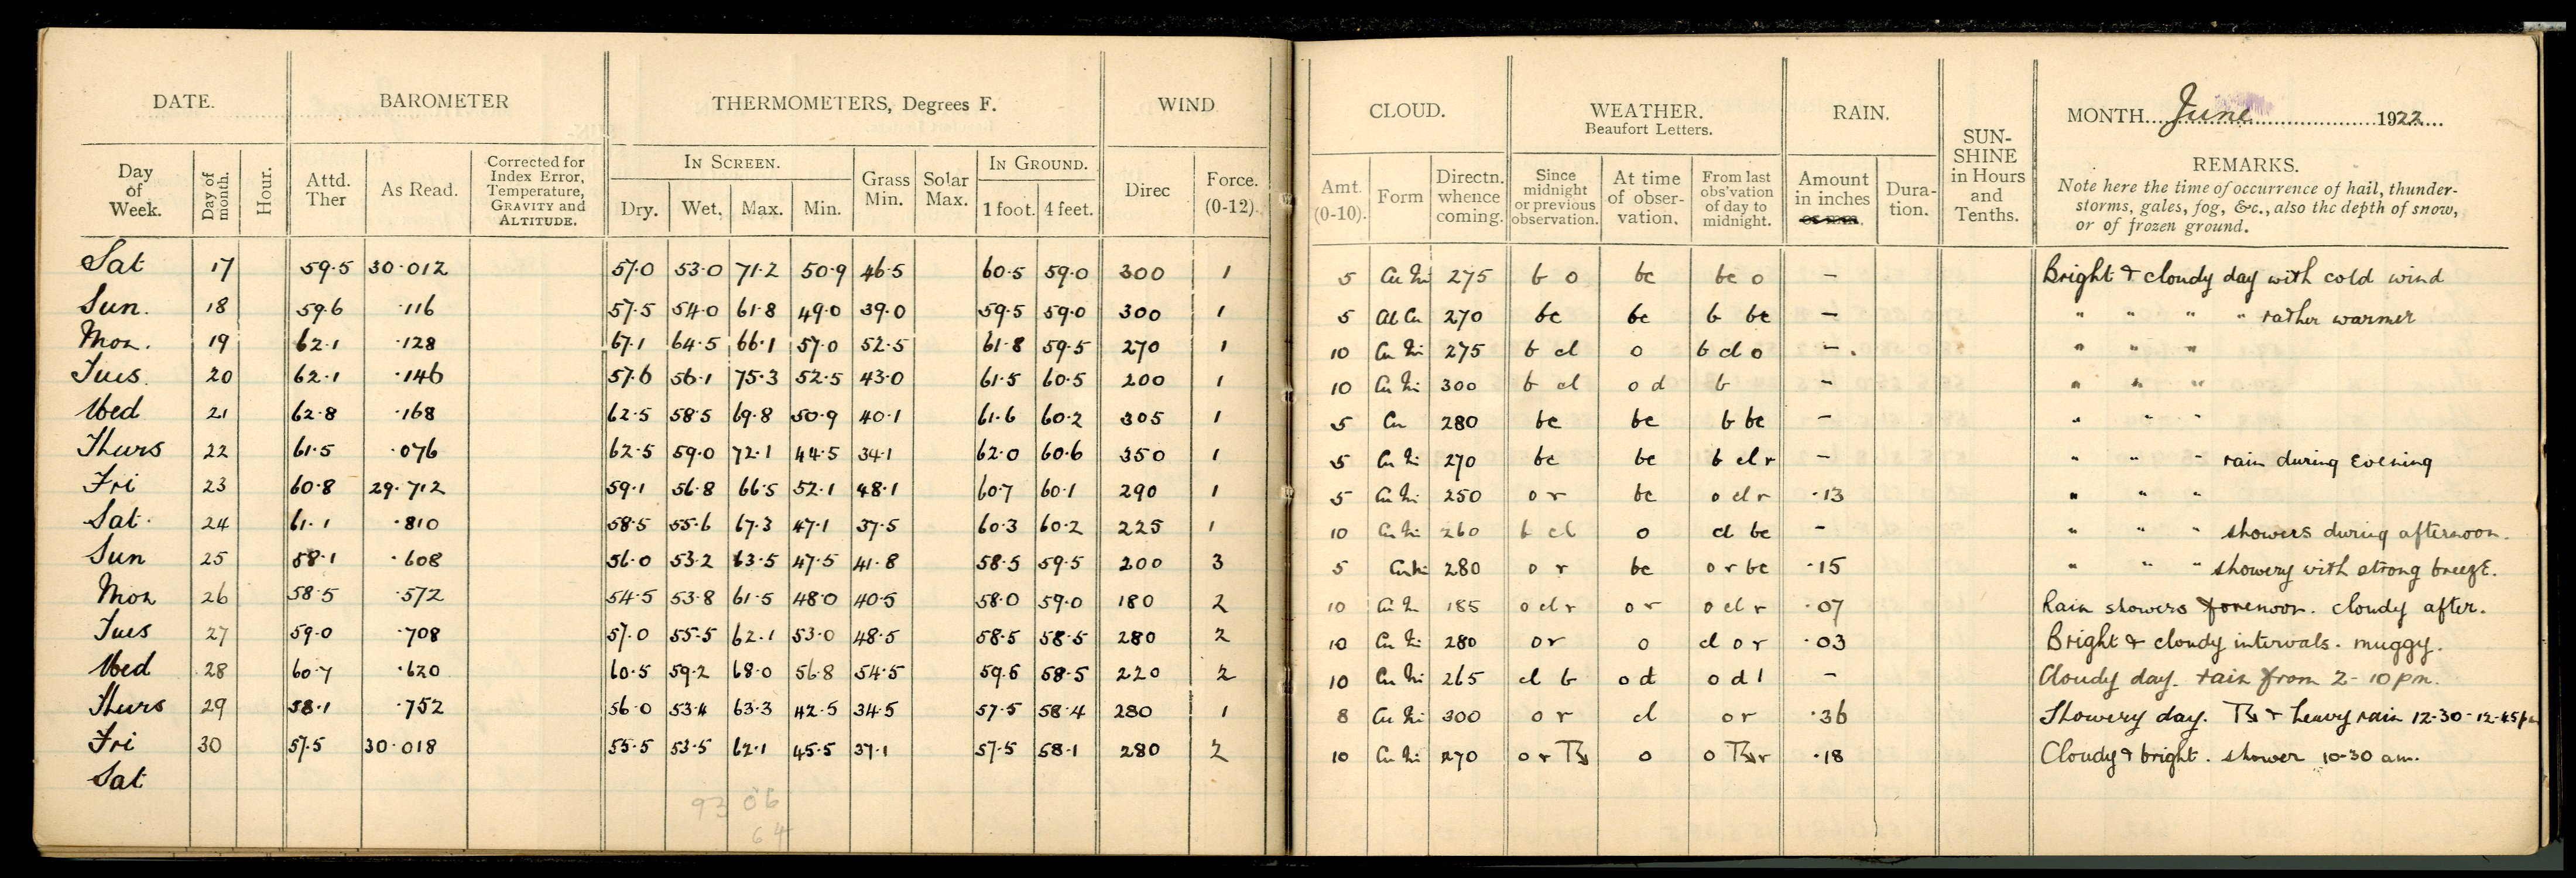 DATE. BAROMETER THERMOMETERS, Degrees F. WIND CLOUD. WEATHER. Beaufort Letters. RAIN. SUN-SHINE in Hours and Tenths. MONTH June 1922
Day of Week. Day of month. Hour. Attd. Ther As Read. Corrected for Index Error, Temperature, GRAVITY and ALTITUDE. IN SCREEN. Dry. Wet. Max. Min. Grass Min. Solar Max. IN GROUND. 1 foot. 4 feet. Direc Force. (0-12). Amt. (0-10). Form Directn. whence coming. Since midnight or previous observation. At time of obser-vation. From last obs'vation of day to midnight. Amount in inches Dura-tion.
REMARKS.
Note here the time of occurrence of hail, thunder-
storms, gales, fog, &c., also the depth of snow,
or of frozen ground.
Sat 17 59.5 30.012 57.0 53.0 71.2 50.9 46.5 60.5 59.0 300 1 5 Cu Ni 275 b o bc bc o - Bright & cloudy day with cold wind
Sun. 18 59.6 .116 57.5 54.0 61.8 49.0 39.0 59.5 59.0 300 1 5 Al Cu 270 bc bc b bc - " " " " rather warmer
Mon. 19 62.1 .128 67.1 64.5 66.1 57.0 52.5 61.8 59.5 270 1 10 Cu Ni 275 b cl o b cl o - " " "
Tues. 20 62.1 .146 57.6 56.1 75.3 52.5 43.0 61.5 60.5 200 1 10 Cu Ni 300 b cl o d b - " " "
Wed 21 62.8 .168 62.5 58.5 69.8 50.9 40.1 61.6 60.2 305 1 5 Cu 280 bc bc b bc - " " "
Thurs 22 61.5 .076 62.5 59.0 72.1 44.5 34.1 62.0 60.6 350 1 5 Cu Ni 270 bc bc b cl r - " " " rain during Evening
Fri 23 60.8 29.712 59.1 56.8 66.5 52.1 48.1 60.7 60.1 290 1 5 Cu Ni 250 o r bc o cl r .13 " " "
Sat. 24 61.1 .810 58.5 55.6 67.3 47.1 37.5 60.3 60.2 225 1 10 Cu Ni 260 b cl o cl bc - " " " showers during afternoon.
Sun 25 58.1 .608 56.0 53.2 63.5 47.5 41.8 58.5 59.5 200 3 5 Cu Ni 280 o r bc o r bc .15 " " " showery with strong breeze.
Mon 26 58.5 .572 54.5 53.8 61.5 48.0 40.5 58.0 59.0 180 2 10 Cu Ni 185 o cl r o r o cl r .07 Rain showers forenoon. cloudy after.
Tues 27 59.0 .708 57.0 55.5 62.1 53.0 48.5 58.5 58.5 280 2 10 Cu Ni 280 o r o cl o r .03 Bright & cloudy intervals. muggy.
Wed 28 60.7 .620 60.5 59.2 68.0 56.8 54.5 59.6 58.5 220 2 10 Cu Ni 265 cl b o d o d l - Cloudy day. rain from 2-10 pm.
Thurs 29 58.1 .752 56.0 53.4 63.3 42.5 34.5 57.5 58.4 280 1 8 Cu Ni 300 o r cl o r .36 Showery day. & heavy rain 12-30-12-45 pm
Fri 30 57.5 30.018 55.5 53.5 62.1 45.5 37.1 57.5 58.1 280 2 10 Cu Ni 270 o r o o r .18 Cloudy & bright. shower 10-30 am.
Sat
93 06
64